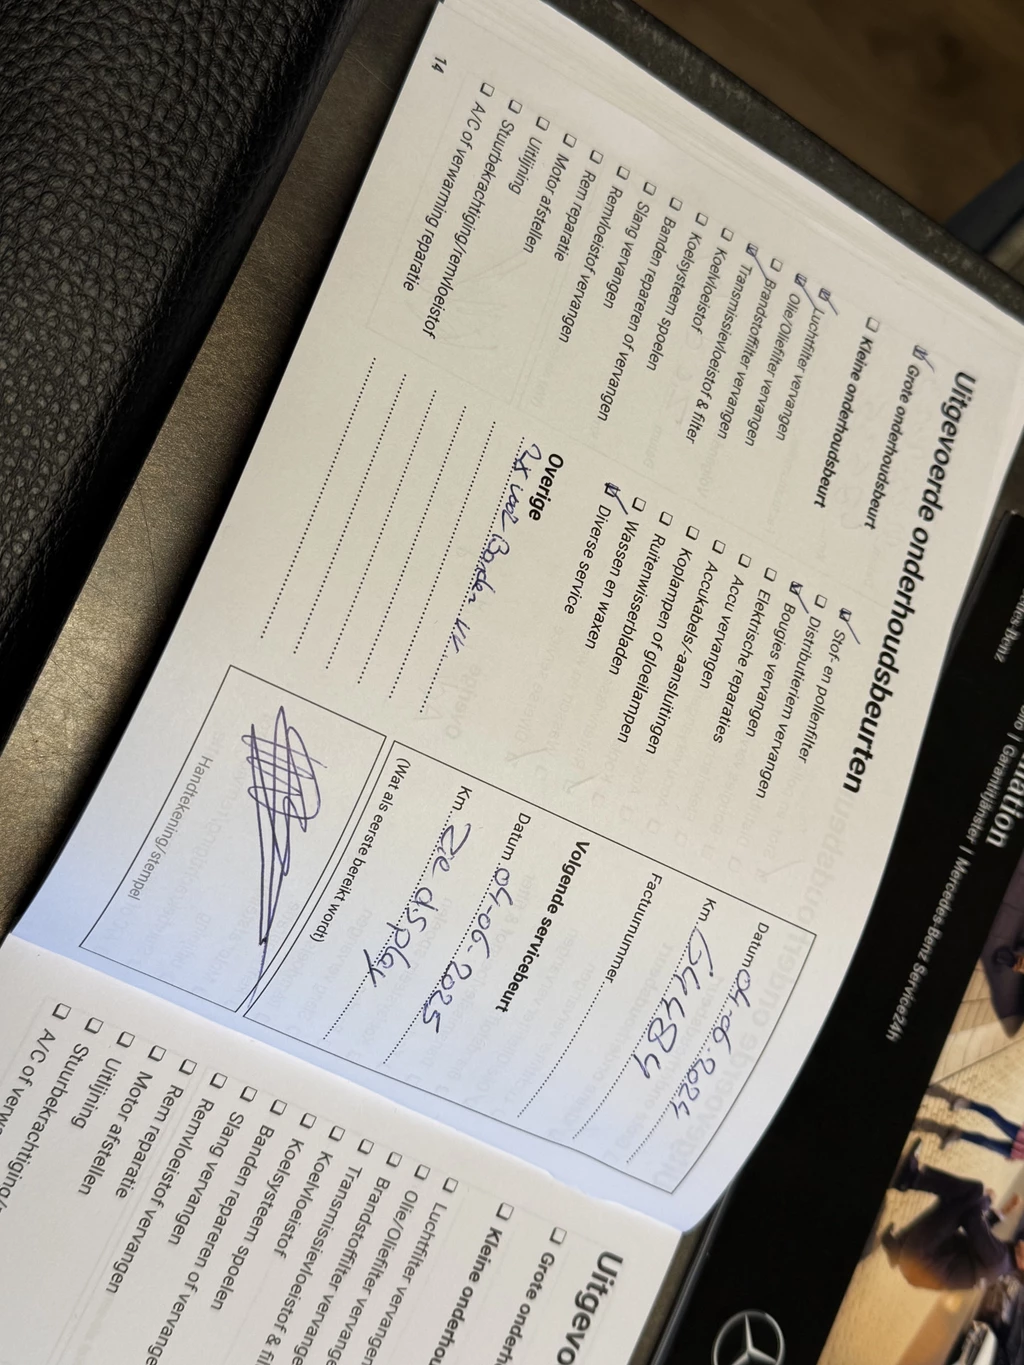 Uitgevoerde onderhoudsbeurten
Grote onderhoudsbeurt
Kleine onderhoudsbeurt
Luchtfilter vervangen
Olie/Oliefilter vervangen
Brandstoffilter vervangen
Transmissievloeistof & filter
Koelvloeistof
Koelsysteem spoelen
Banden repareren of vervangen
Slang vervangen
Remvloeistof vervangen
Rem reparatie
Motor afstellen
Uitlijning
Stuurbekrachtiging/remvloeistof
A/C of verwarming reparatie
14
Stof- en pollenfilter
Distributieriem vervangen
Bougies vervangen
Elektrische reparaties
Accu vervangen
Accukabels/-aansluitingen
Koplampen of gloeilampen
Ruitenwisserbladen
Wassen en waxen
Diverse service
Overige
2x Banden
Datum 04-06-2024
Km 64484
Factuurnummer
Volgende servicebeurt
Datum 04-06-2025
Km Zie display
(Wat als eerste bereikt word!)
Handtekening/stempel
Uitgevo
Grote onderh
Kleine onderhou
Luchtfilter vervangen
Olie/Oliefilter vervange
Brandstoffilter vervange
Transmissievloeistof & fil
Koelvloeistof
Koelsysteem spoelen
Banden repareren of vervange
Slang vervangen
Remvloeistof vervangen
Rem reparatie
Motor afstellen
Uitlijning
Stuurbekrachtiging/
A/C of verw
Garantijänster | Mercedes-Benz Service24h